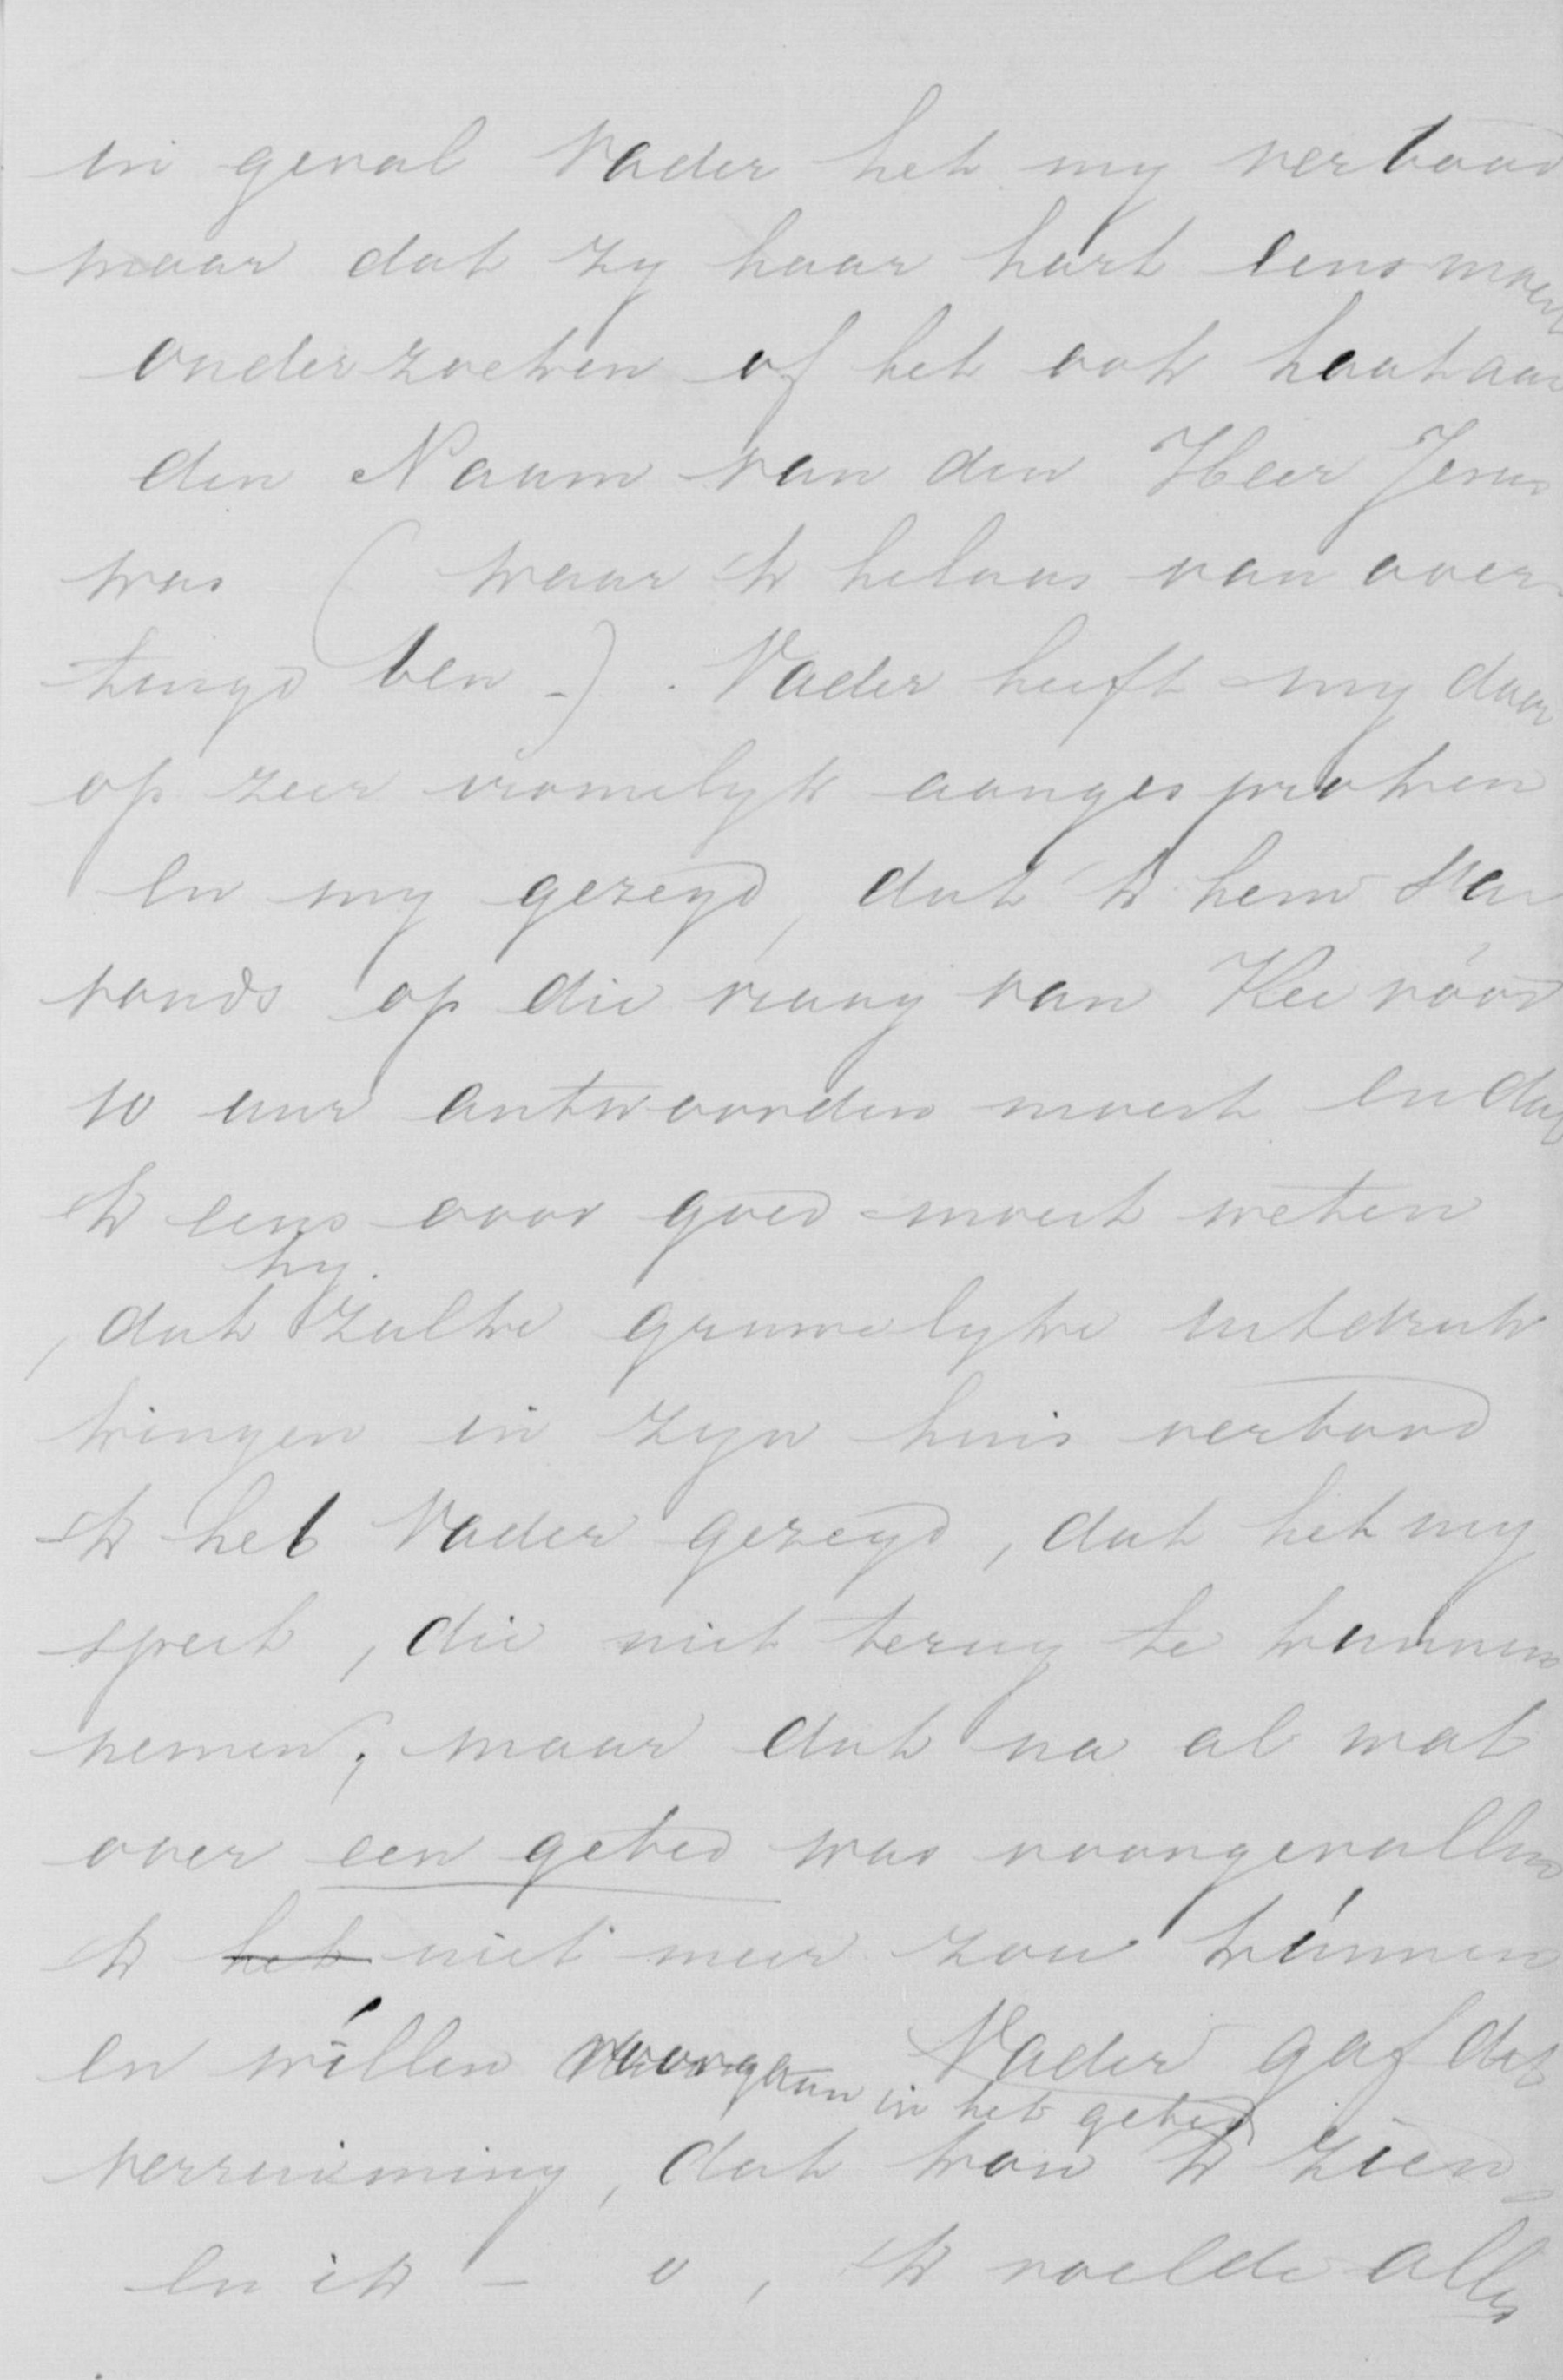 in geval Vader het my verbood
maar dat zy haar hart eens moest
onderzoeken of het ook haat aan
den Naam van den Heer Jezus
was ( waar ik helaas van over-
tuigd ben -) . Vader heeft my daar
op zeer vromelyk aangesproken
en my gezegd, dat ik hem
vonds op die vraag van Kee vóór
10 uur antwoorden moest en dat
ik eens voor goed moest weten
, dat hy zulke gruwelyke uitdruk
kingen in zyn huis verbood
ik heb Vader gezegd, dat het my
speet, die niet terug te kunnen
nemen; maar dat na al wat
over een gebed was voorgevallen
ik het niet meer zou kúnnen
en wíllen voorgaan in het gebed Vader gaf dat
verruiming, dat kon ik zien
en ik - o, ik voelde alles